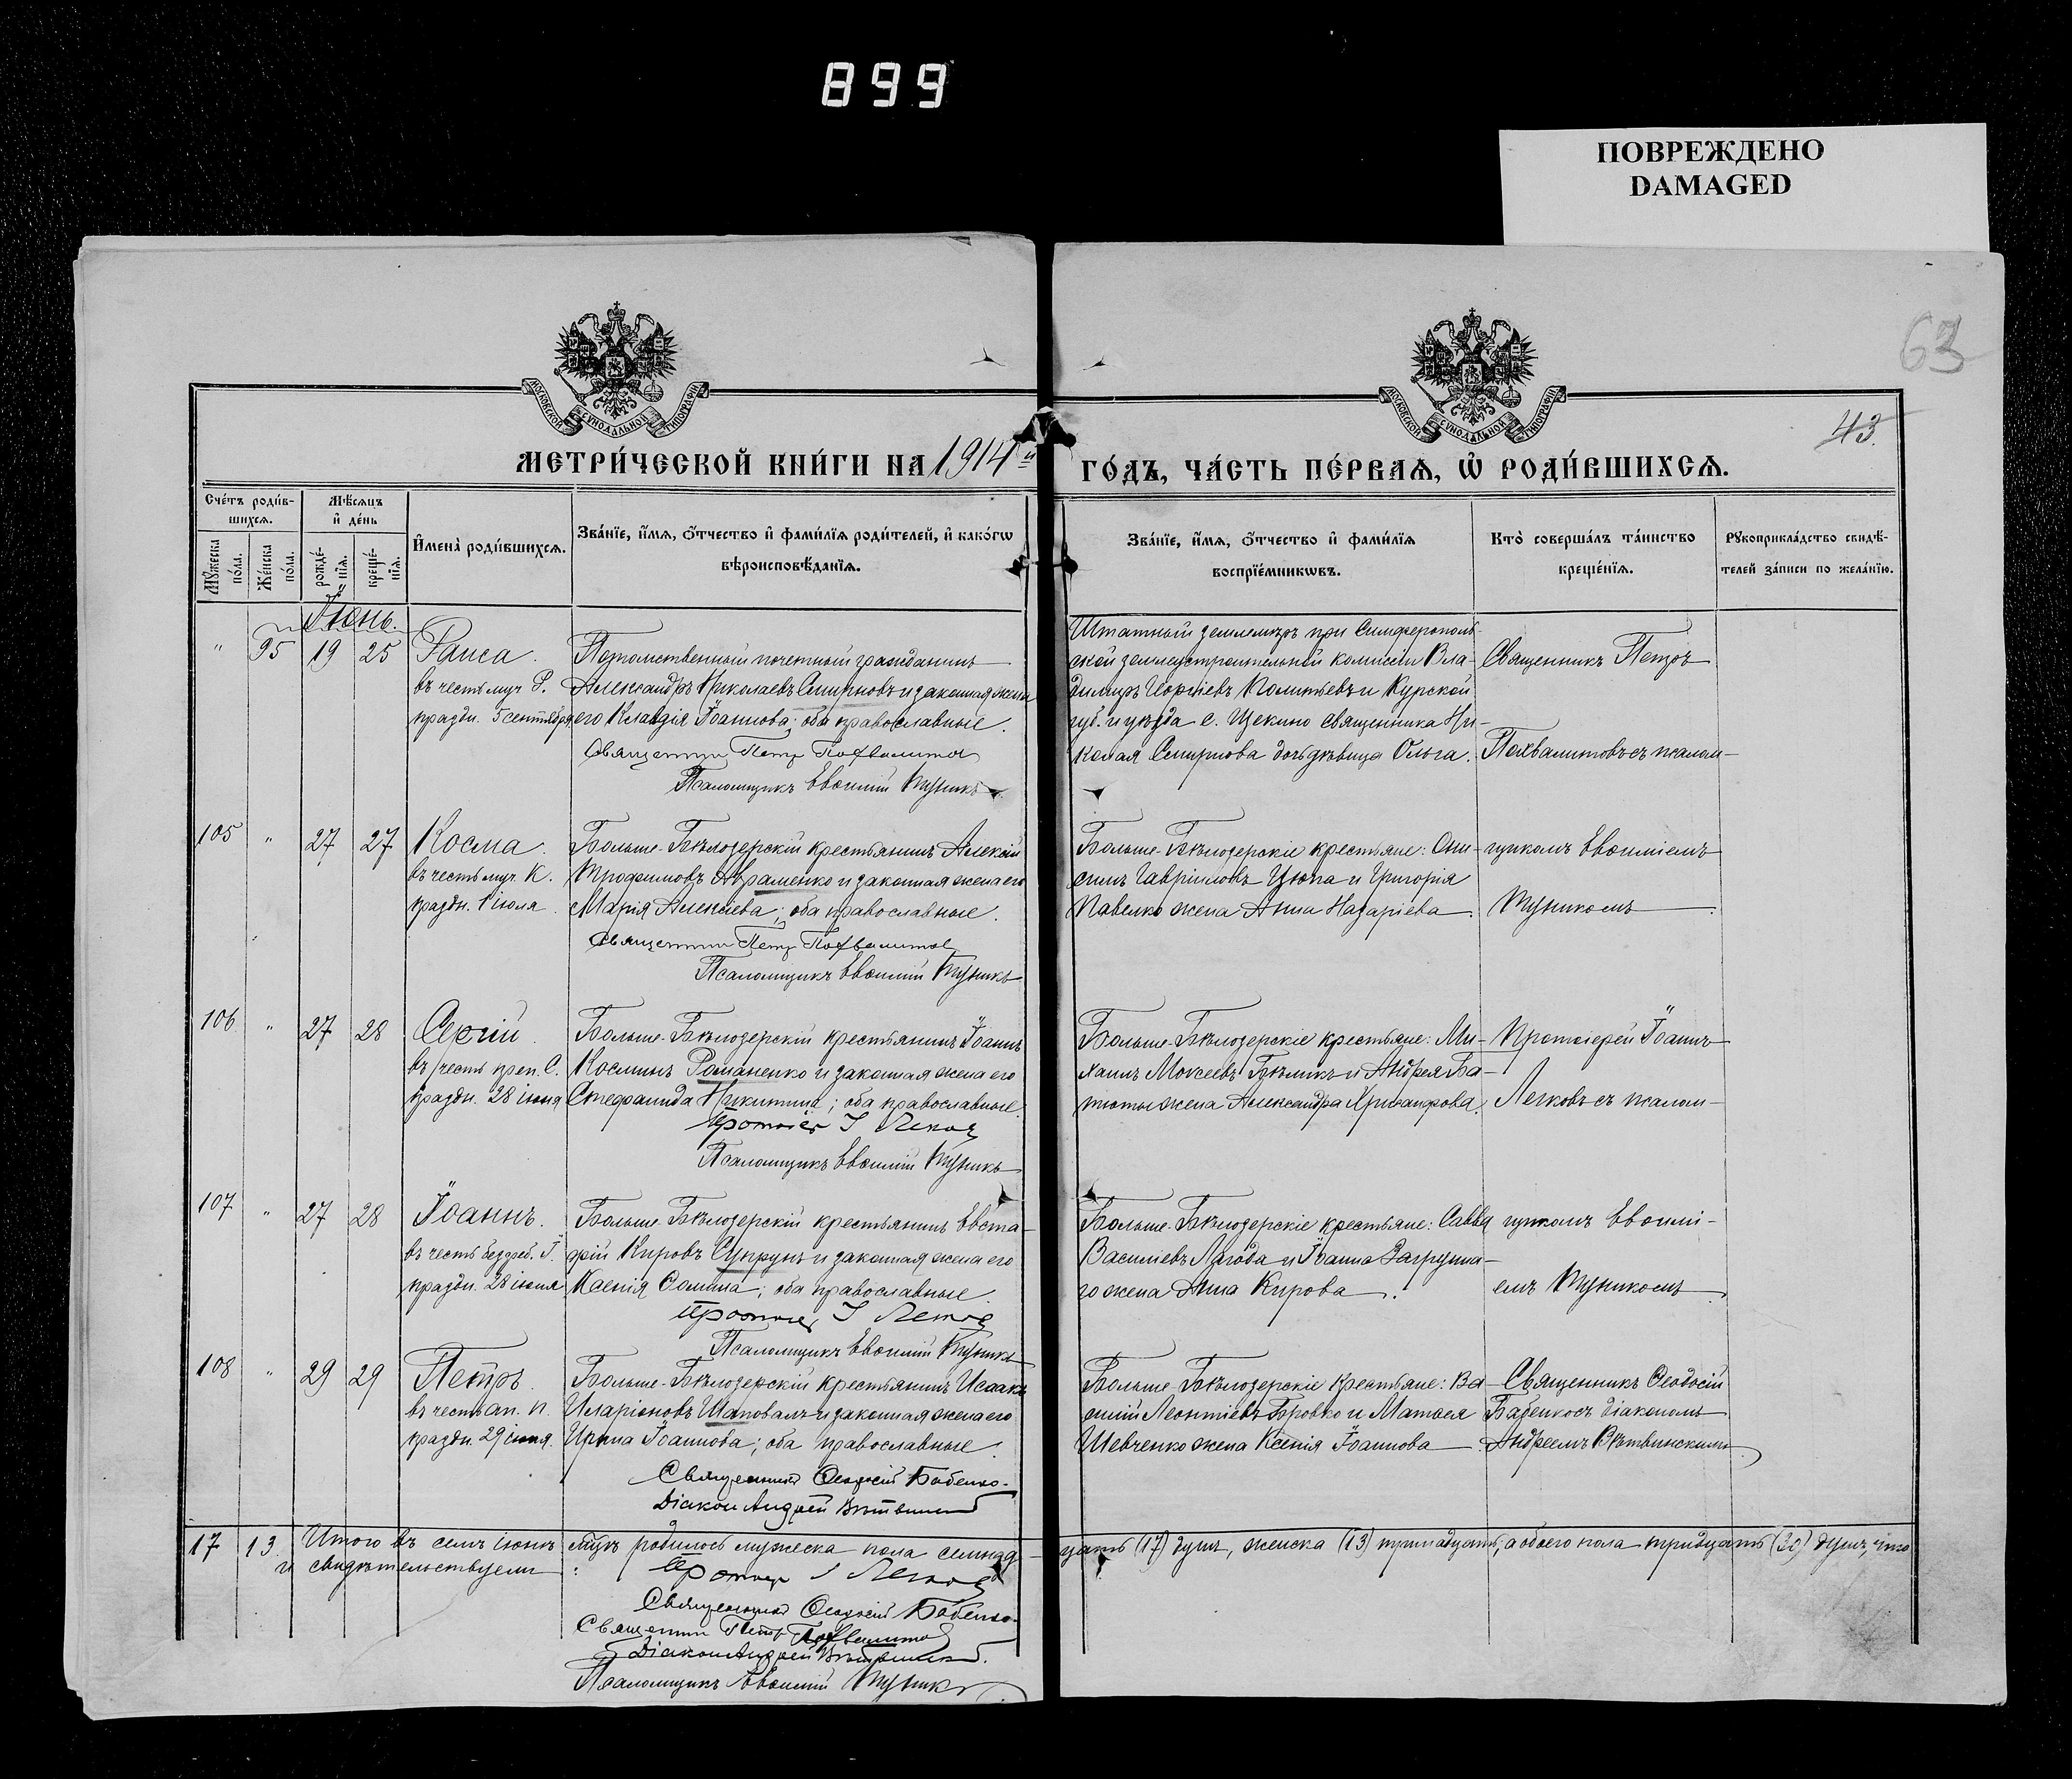 899
ПОВРЕЖДЕНО
DAMAGED
63
43.
МОСКОВСКОЙ СѴНОДАЛЬНОЙ ТИПОГРАФІИ
МОСКОВСКОЙ СѴНОДАЛЬНОЙ ТИПОГРАФІИ
МЕТРИ́ЧЕСКОЙ КНИ́ГИ НА 1914й ГО́ДЪ, ЧА́СТЬ ПЕ́РВАѦ, Ѡ҆ РОДИ́ВШИХСѦ.
Сче́тъ роди́в-
шихсѧ.
Мꙋжеска по́ла.
Же́нска по́ла.
Мѣ́сѧцъ
и҆ де́нь
рожде́-
нїѧ.
креще́-
нїѧ.
И҆мена̀ роди́вшихсѧ.
Зва́нїе, и҆́мѧ, ѻ҆́тчество и҆ фами́лїѧ роди́телей, и҆ како́гѡ
вѣроисповѣ́данїѧ.
Зва́нїе, и҆́мѧ, ѻ҆́тчество и҆ фами́лїѧ
воспрїе́мникѡвъ.
Кто̀ соверша́лъ та́инство
креще́нїѧ.
Рꙋкоприкла́дство свидѣ́-
телей за́писи по жела́нїю.
Іюнь.
" 95 19 25 Раиса.
въ честь муч. Р.
праздн. 5 сентября
Потомственный почетный гражданинъ
Александръ Николаевъ Смирновъ и законная жена
его Клавдія Іоаннова; оба православные.
Священник Петр Похвалитов
Псаломщикъ Евѳимій Тупикъ
Штатный землемѣръ при Симферополь-
ской землеустроительной комиссіи Вла-
димиръ Георгіевъ и Курской
губ. и уѣзда с. Щекино священника Ни-
колая Смирнова дочь дѣвица Ольга.
Священникъ Петръ
Похвалитовъ съ псалом-
105 " 27 27 Косма.
въ честь муч. К.
праздн. 1 іюля.
Больше-Бѣлозерскій крестьянинъ Алексій
Трофимовъ Авраменко и законная жена его
Марія Алексіева; оба православные.
Священник Петр Похвалитов
Псаломщикъ Евѳимій Тупикъ
Больше-Бѣлозерскіе крестьяне: Они-
симъ Гавріиловъ Цюпа и Григорія
Павелко жена Анна Назаріева.
щикомъ Евѳиміемъ
Тупикомъ.
106 " 27 28 Сергій.
въ честь преп. С.
праздн. 28 іюня
Больше-Бѣлозерскій крестьянинъ Іоаннъ
Косминъ Романенко и законная жена его
Стефанида Никитина; оба православные.
Протоіер. І Легков
Псаломщикъ Евѳимій Тупикъ
Больше-Бѣлозерскіе крестьяне: Ми-
хаилъ Моисеевъ Бѣликъ и Андрея Ба-
жена Александра Хрисанфова.
Протоіерей Іоаннъ
Легковъ съ псалом-
107 " 27 28 Іоаннъ.
въ честь безсреб. І.
праздн. 28 іюня
Больше-Бѣлозерскій крестьянинъ Евста-
фій Кировъ Супрунъ и законная жена его
Ксенія Ѳомина; оба православные.
Протоіер. І Легков
Псаломщикъ Евѳимій Тупикъ
Больше-Бѣлозерскіе крестьяне: Савва
Василіевъ Лагода и Іоанна
го жена Анна Кирова.
щикомъ Евѳимі-
емъ Тупикомъ.
108 " 29 29 Петръ.
въ честь ап. П.
праздн. 29 іюня.
Больше-Бѣлозерскій крестьянинъ Исаакъ
Иларіоновъ Шаповалъ и законная жена его
Ирина Іоаннова; оба православные.
Священникъ Ѳеодосій Бабенко.
Діакон Андрей Вѣтвинскій
Больше-Бѣлозерскіе крестьяне: Ва-
силій Леонтіевъ Бровко и Матѳея
Шевченко жена Ксенія Іоаннова.
Священникъ Ѳеодосій
Бабенко съ діакономъ
Андреемъ Вѣтвинскимъ.
17 13 Итого въ семъ іюнѣ мѣсяцѣ родилось мужеска пола семнад-
цать (17) душ, женска (13) тринадцать, а обоего пола тридцать (30) душ, что
и свидѣтельствуемъ:
Протоіер. І Легков
Священникъ Ѳеодосій Бабенко.
Священник Петр Похвалитов
Діакон Андрей Вѣтвинскій.
Псаломщикъ Евѳимій Тупикъ.